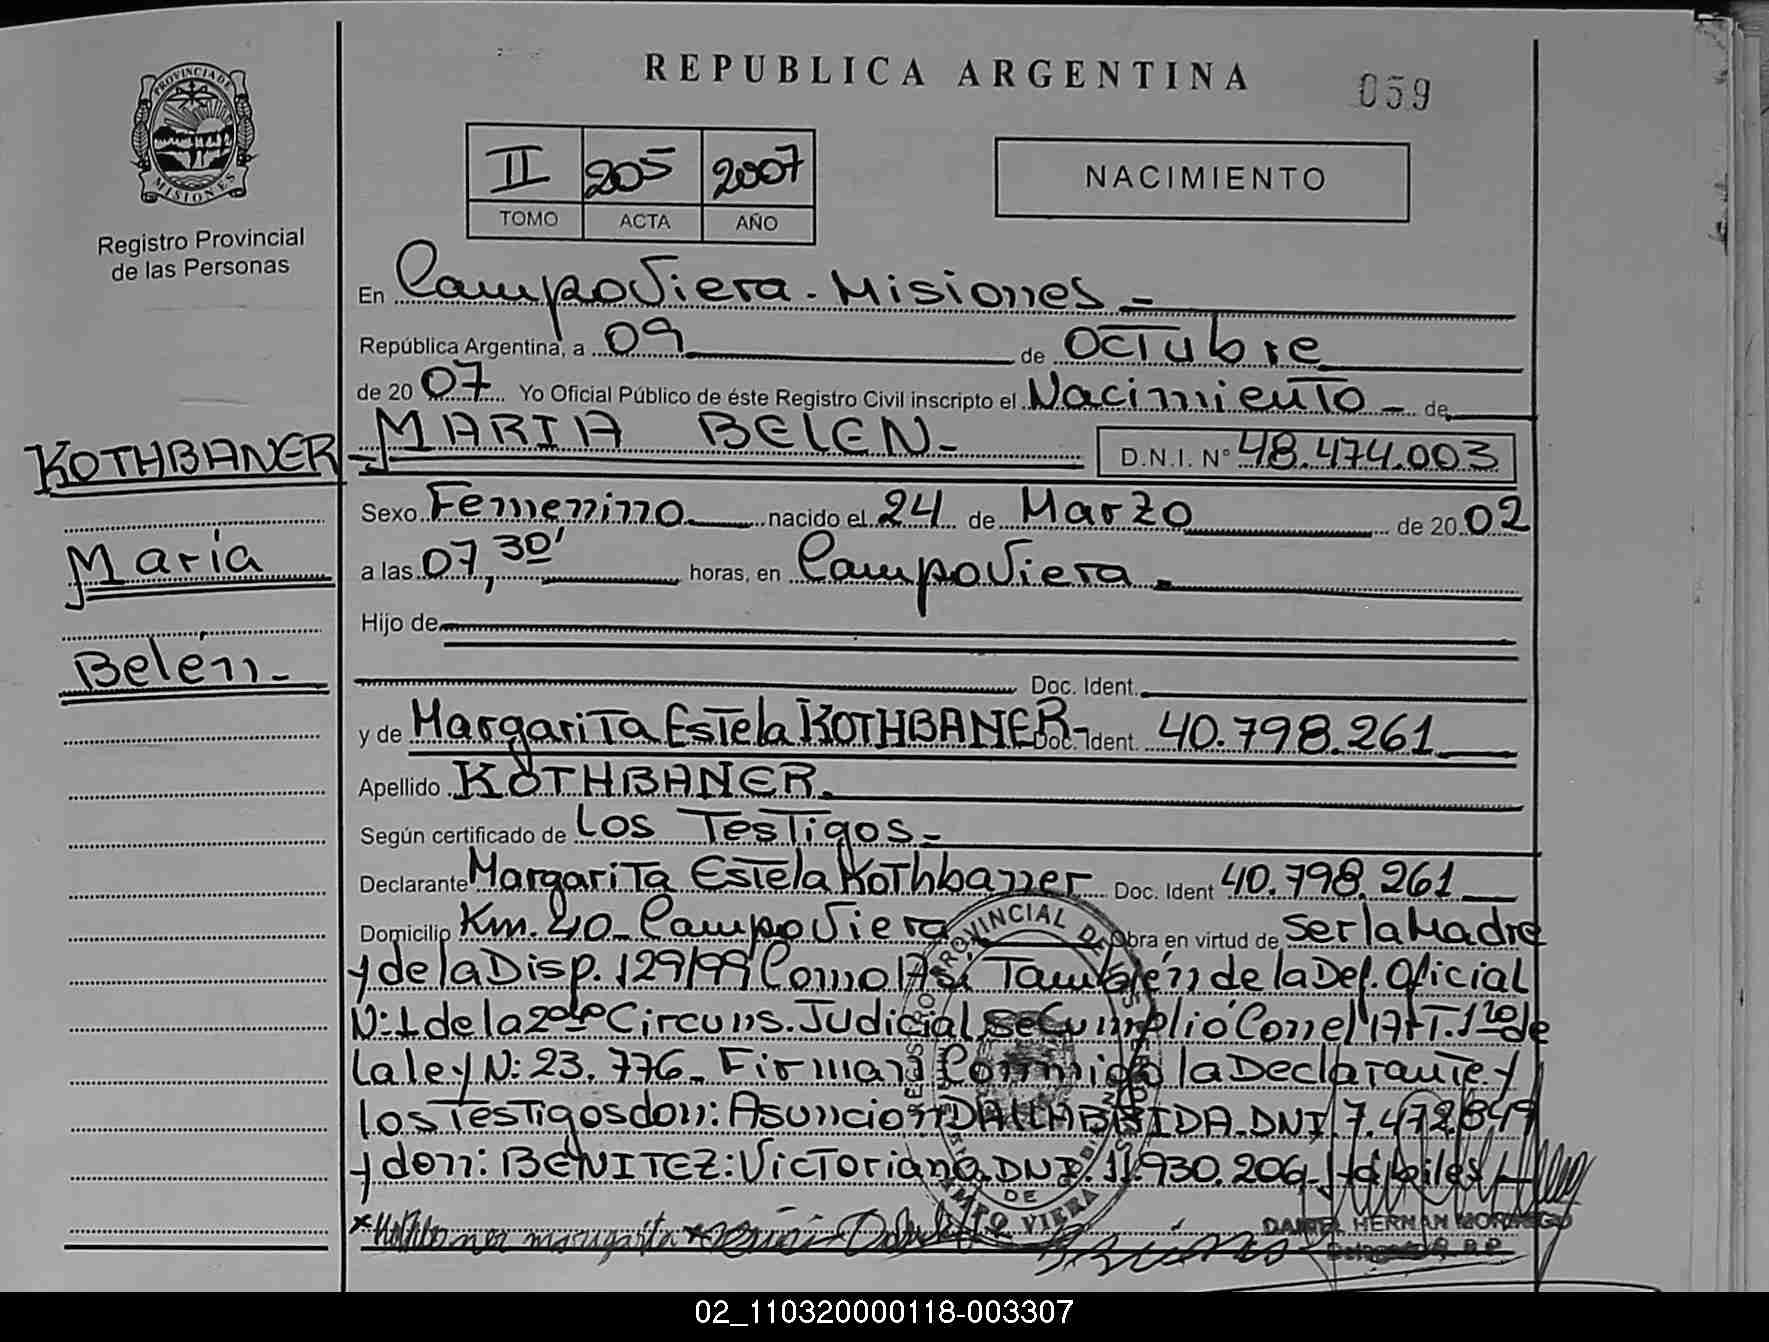 REPUBLICA ARGENTINA
059
PROVINCIA DE
MISIONES
Registro Provincial
de las Personas
II 205 2007
TOMO ACTA AÑO
NACIMIENTO
En Campo Viera - Misiones -
República Argentina, a 09 de Octubre
de 20 07 Yo Oficial Público de éste Registro Civil inscripto el Nacimiento - de
KOTHBANER - MARIA BELEN -
D.N.I. N° 48.474.003
María
Belén -
Sexo Femenino nacido el 24 de Marzo de 20 02
a las 07,30' horas, en Campo Viera -
Hijo de
Doc. Ident.
y de Margarita Estela KOTHBANER - Doc. Ident. 40.798.261
Apellido KOTHBANER.
Según certificado de Los Testigos -
Declarante Margarita Estela Kothbaner Doc. Ident 40.798.261
Domicilio Km. 40 - Campo Viera Obra en virtud de ser la Madre
y de la Disp. 129/99 Como Así También de la Def. Oficial
N: 1 de la 2da Circuns. Judicial se Cumplió Con el Art. 1ro de
la ley N: 23.776 - Firman Conmigo la Declarante y
los Testigos don: Asunción DNI 7.472.849
y don: BENITEZ: Victoriano DNI. 11.930.206 - Hábiles -
DE
CAMPO VIERA
DANIEL HERNAN
02_110320000118-003307